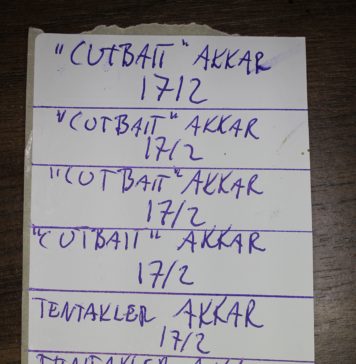 "CUTBAIT" AKKAR
17/2
"CUTBAIT" AKKAR
17/2
"CUTBAIT" AKKAR
17/2
"CUTBAIT" AKKAR
17/2
TENTAKLER AKKAR
17/2
TENTAKLER AKKAR